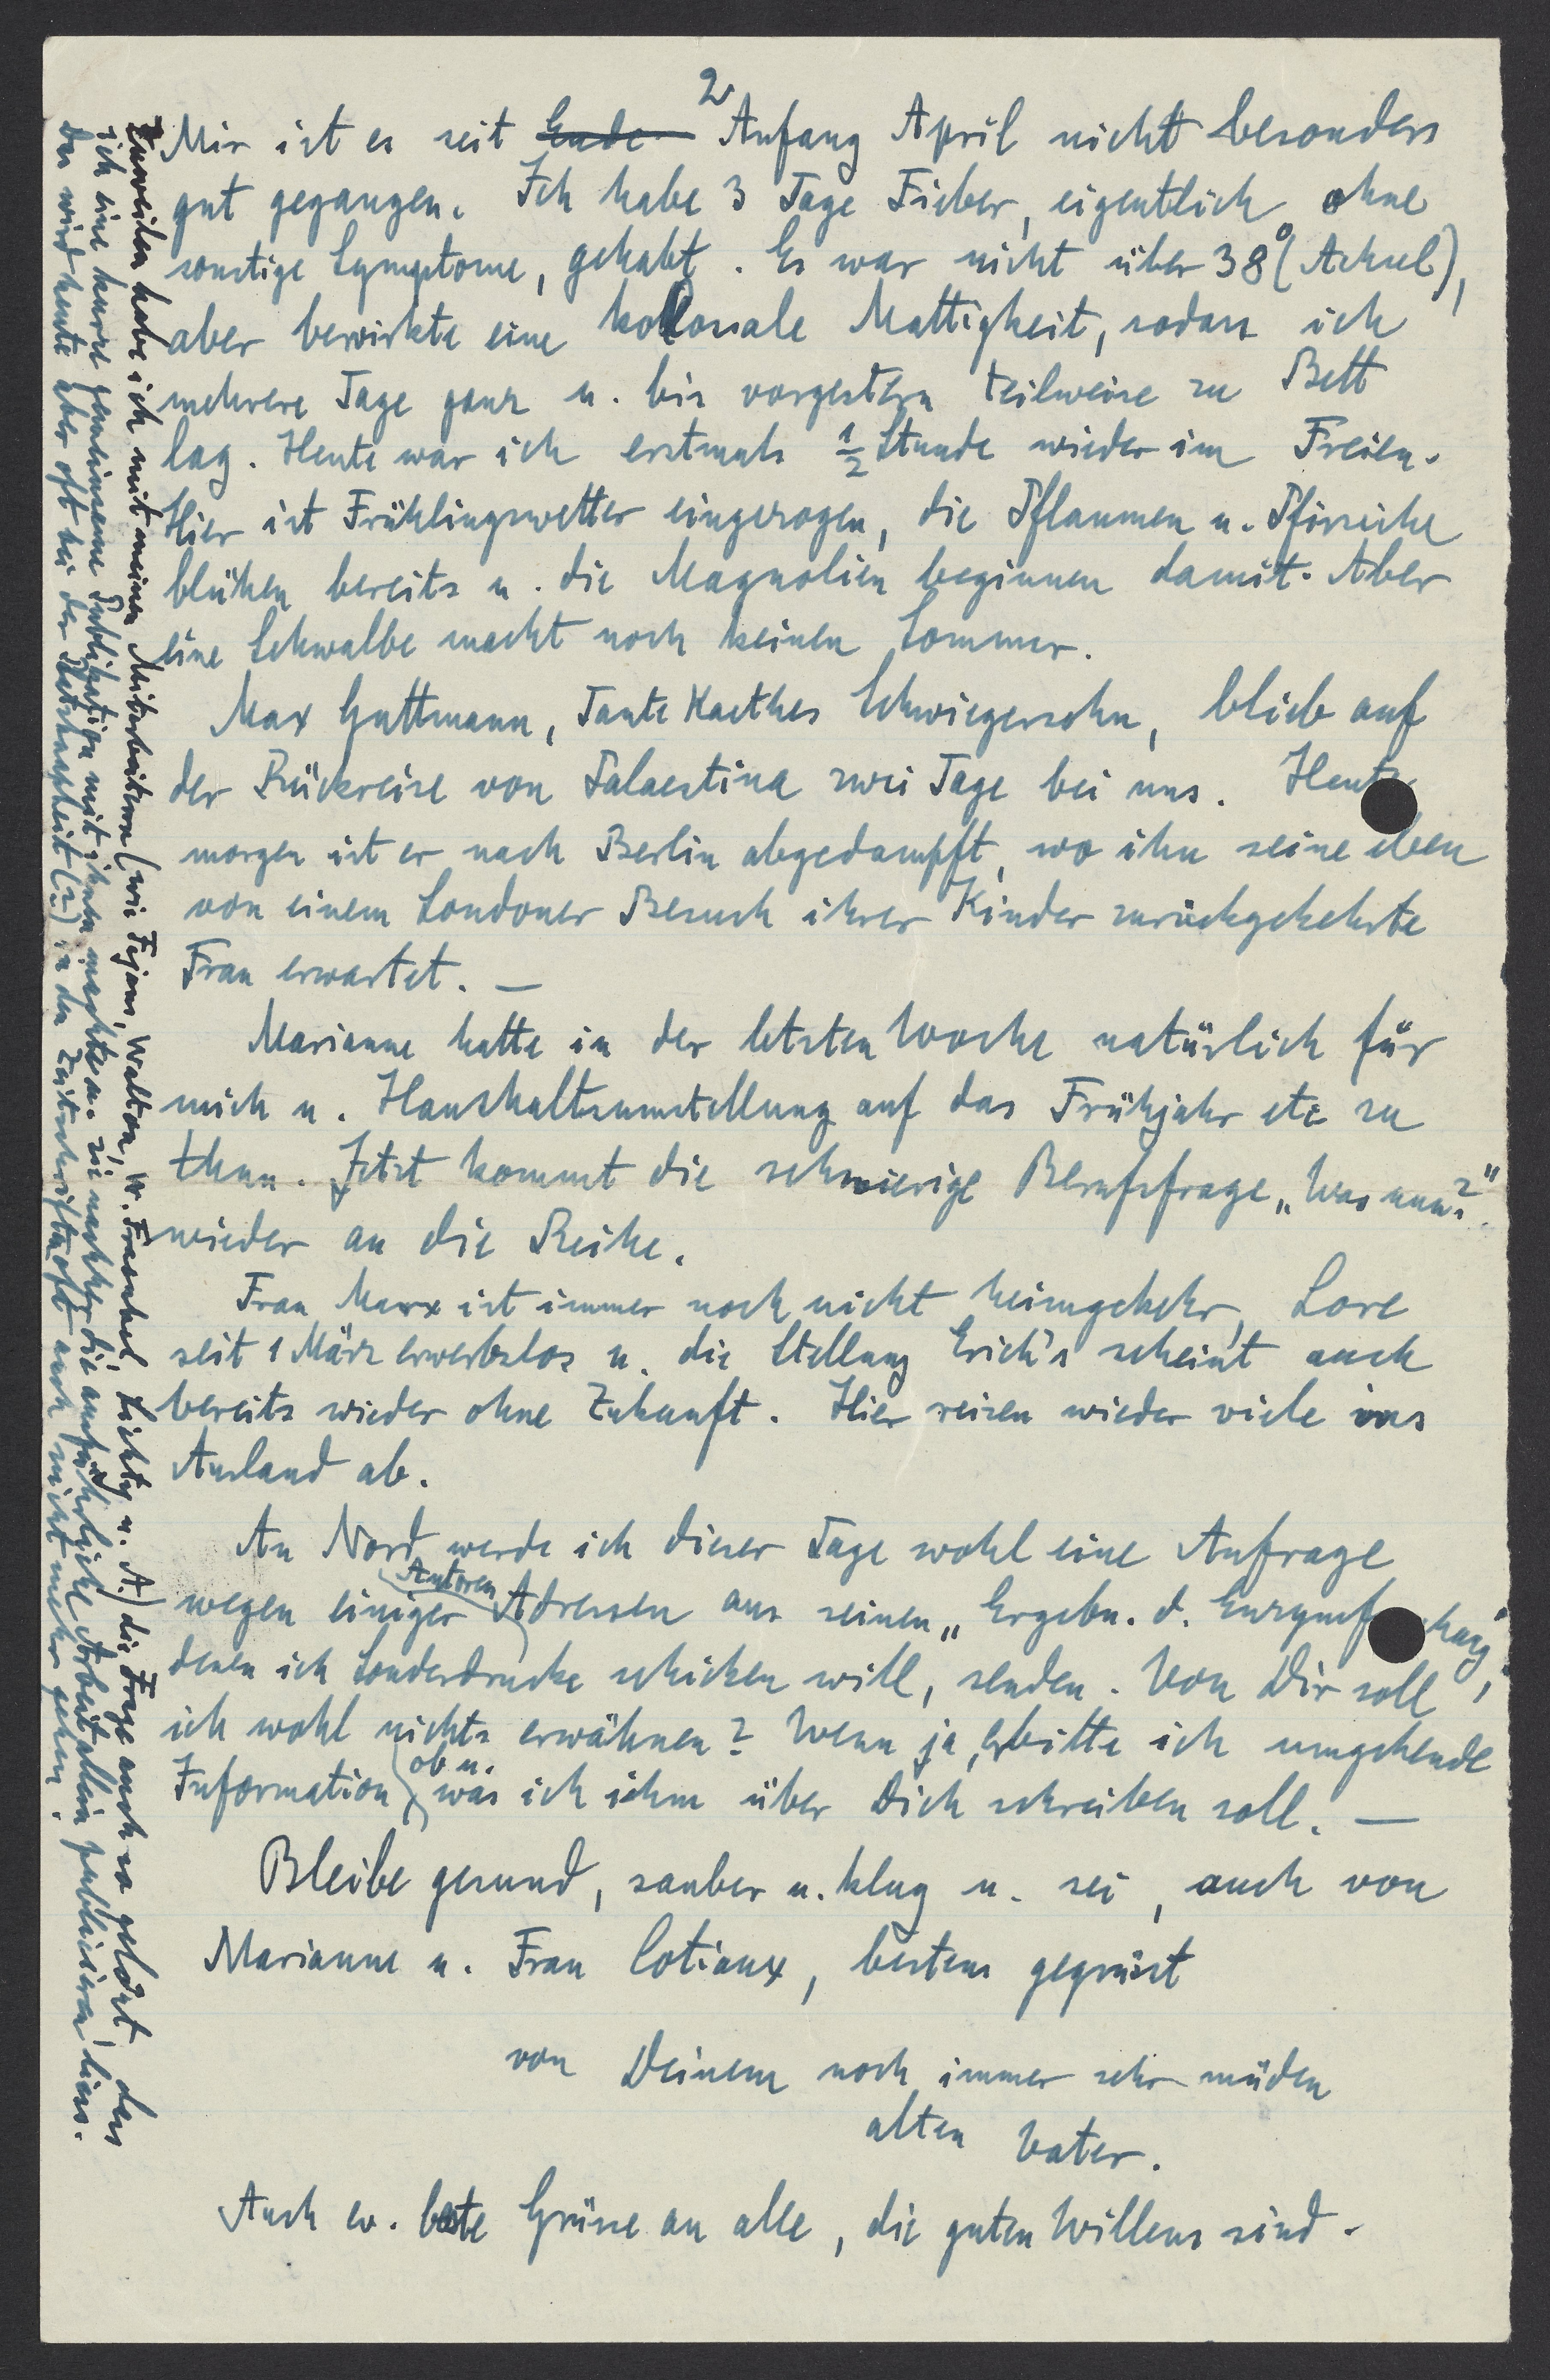 2
Mir ist es seit Ende Anfang April nicht besonders
gut gegangen. Ich habe 3 Tage Fieber, eigentlich ohne
sonstige Symptome, gehabt. Es war nicht über 38° (Achsel),
aber bewirkte eine kollossale Mattigkeit, sodass ich
mehrere Tage ganz u. bis vorgestern teilweise zu Bett
lag. Heute war ich erstmals ½ Stunde wieder im Freien.
Hier ist Frühlingswetter eingezogen, die Pflaumen u. Pfirsiche
blühen bereits u. die Magnolien beginnen damit. Aber
eine Schwalbe macht noch keinen Sommer.
Max Guttmann, Tante Kaethes Schwiegersohn, blieb auf
der Rückreise von Palaestina zwei Tage bei uns. Heute
morgen ist er nach Berlin abgedampft, wo ihn seine eben
von einem Londoner Besuch ihrer Kinder zurückgekehrte
Frau erwartet. —
Marianne hatte in der letzten Woche natürlich für
mich u. Haushaltsumstellung auf das Frühjahr etc zu
thun. Jetzt kommt die schwierige Berufsfrage „Was nun?"
wieder an die Reihe.
Frau Marx ist immer noch nicht heimgekehr, Lore
seit 1 März erwerbslos u. die Stellung Erich's scheint auch
bereits wieder ohne Zukunft. Hier reisen wieder viele ins
Ausland ab.
An Nord werde ich dieser Tage wohl eine Anfrage
Autoren
wegen einiger Adressen aus seinen „Ergebn. d. Enzymf chung",
denen ich Sonderdrucke schicken will, senden. Von Dir soll
ich wohl nichts erwähnen? Wenn ja, erbitte ich umgehende
ob u.
Information was ich ihm über Dich schreiben soll. —
Bleibe gesund, sauber u. klug u. sei, auch von
Marianne u. Frau Cotiaux, bestens gegrüsst
von Deinem noch immer sehr müden
alten Vater.
Auch ev. beste Grüsse an alle, die guten Willens sind.
Zuweilen habe ich mit meinen Mitarbeitern (wie Fajans, Walton, W. Fraenkel, Lichty u. A.) die Frage auch so gelöst, dass
ich eine kurze gemeinsame Publikation mit ihnen machte u. sie nachher die ausführliche Arbeit allein publiciren liess.
Das wird heute aber oft bei der in den Zeitschriften oft auch nicht mehr gehen.